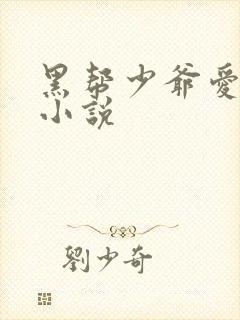 黑帮少爷愛
小説
劉少奇